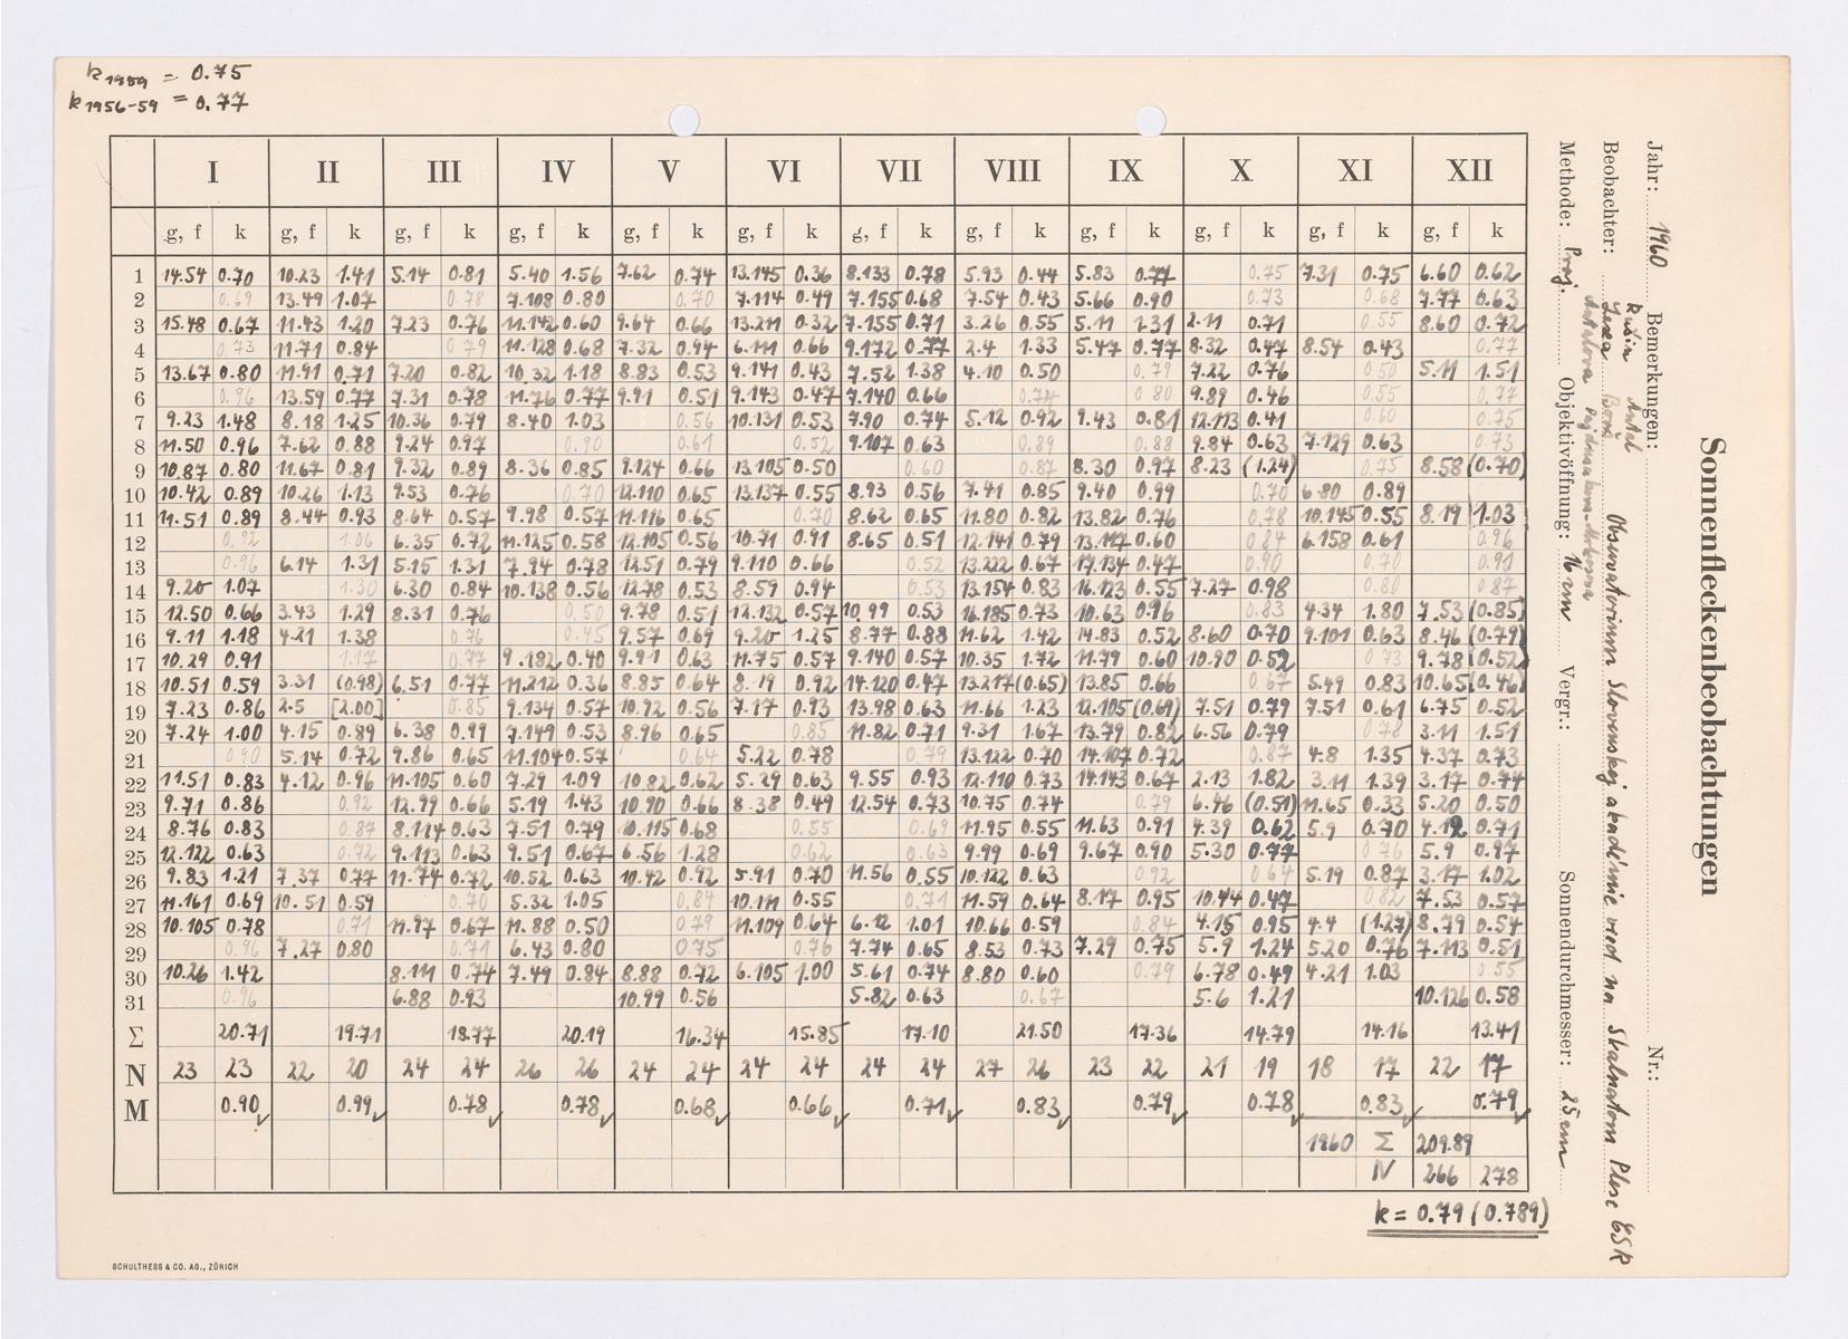 k 1959 = 0.75
k 1956-59 = 0.77
Sonnenfleckenbeobachtungen
Jahr: 1960 Bemerkungen: Nr.:
Beobachter: Observatorium Slovenskej akadémie vied na Skalnatom Plese ČSR
Methode: Proj. Objektivöffnung: 16 cm Vergr.: Sonnendurchmesser: 25 cm
I II III IV V VI VII VIII IX X XI XII
g, f k g, f k g, f k g, f k g, f k g, f k g, f k g, f k g, f k g, f k g, f k g, f k
1 14.54 0.70 10.23 1.41 5.14 0.81 5.40 1.56 7.62 0.74 13.145 0.36 8.133 0.78 5.93 0.44 5.83 0.77 0.75 7.31 0.75 6.60 0.62
2 0.69 13.49 1.07 0.78 7.108 0.80 0.70 7.114 0.49 7.155 0.68 7.54 0.43 5.66 0.90 0.73 0.68 7.77 0.63
3 15.48 0.67 11.43 1.20 7.23 0.76 11.142 0.60 9.64 0.66 13.211 0.32 7.155 0.71 3.26 0.55 5.11 1.31 2.11 0.71 0.55 8.60 0.72
4 0.73 11.71 0.84 0.79 11.128 0.68 7.32 0.94 6.111 0.66 9.172 0.77 2.4 1.33 5.47 0.77 8.32 0.47 8.54 0.43 0.77
5 13.67 0.80 11.91 0.71 7.20 0.82 10.32 1.18 8.83 0.53 9.141 0.43 7.52 1.38 4.10 0.50 0.79 7.22 0.76 0.50 5.11 1.51
6 0.96 13.59 0.77 7.31 0.78 11.76 0.77 9.91 0.51 9.143 0.47 7.140 0.66 0.74 0.80 9.89 0.46 0.55 0.77
7 9.23 1.48 8.18 1.25 10.36 0.79 8.40 1.03 0.56 10.131 0.53 7.90 0.74 5.12 0.92 9.43 0.81 12.113 0.41 0.60 0.75
8 11.50 0.96 7.62 0.88 9.24 0.97 0.90 0.61 0.52 9.107 0.63 0.89 0.88 9.84 0.63 7.129 0.63 0.73
9 10.87 0.80 11.67 0.81 7.32 0.89 8.36 0.85 9.124 0.66 13.105 0.50 0.60 0.87 8.30 0.97 8.23 (1.24) 0.75 8.58 (0.70)
10 10.42 0.89 10.26 1.13 9.53 0.76 0.70 12.110 0.65 13.137 0.55 8.93 0.56 7.41 0.85 9.40 0.99 0.70 6.80 0.89
11 11.51 0.89 8.44 0.93 8.64 0.57 9.98 0.57 11.116 0.65 0.70 8.62 0.65 11.80 0.82 13.82 0.76 0.78 10.145 0.55 8.19 1.03
12 0.92 1.06 6.35 0.72 11.125 0.58 12.105 0.56 10.71 0.91 8.65 0.51 12.141 0.79 13.117 0.60 0.84 6.158 0.61 0.96
13 0.96 6.14 1.31 5.15 1.31 7.94 0.78 12.51 0.79 9.110 0.66 0.52 13.222 0.67 17.134 0.47 0.90 0.70 0.91
14 9.20 1.07 1.30 6.30 0.84 10.138 0.56 12.78 0.53 8.59 0.94 0.53 13.154 0.83 16.123 0.55 7.27 0.98 0.80 0.87
15 12.50 0.66 3.43 1.29 8.31 0.76 0.50 9.78 0.51 12.132 0.57 10.99 0.53 16.185 0.73 10.63 0.96 0.83 4.34 1.80 7.53 (0.85)
16 9.11 1.18 4.21 1.38 0.76 0.45 9.57 0.69 9.20 1.25 8.77 0.88 11.62 1.42 14.83 0.52 8.60 0.70 9.101 0.63 8.46 (0.79)
17 10.29 0.91 1.17 0.77 9.182 0.40 9.91 0.63 11.75 0.57 9.140 0.57 10.35 1.72 11.79 0.60 10.90 0.52 0.73 9.78 (0.52)
18 10.51 0.59 3.31 (0.98) 6.51 0.77 11.212 0.36 8.85 0.64 8.19 0.92 14.120 0.47 13.217 (0.65) 13.85 0.66 0.67 5.49 0.83 10.65 (0.46)
19 7.23 0.86 2.5 [2.00] 0.85 9.134 0.57 10.92 0.56 7.17 0.93 13.98 0.63 11.66 1.23 12.105 (0.69) 7.51 0.79 7.51 0.61 6.75 0.52
20 7.24 1.00 4.15 0.89 6.38 0.99 7.149 0.53 8.96 0.65 0.85 11.82 0.71 9.31 1.67 13.79 0.82 6.56 0.79 0.78 3.11 1.51
21 0.90 5.14 0.72 9.86 0.65 11.104 0.57 0.64 5.22 0.78 0.79 13.122 0.70 14.107 0.72 0.87 4.8 1.35 4.37 0.73
22 11.51 0.83 4.12 0.96 11.105 0.60 7.29 1.09 10.82 0.62 5.29 0.63 9.55 0.93 12.110 0.73 14.143 0.67 2.13 1.82 3.11 1.39 3.17 0.74
23 9.71 0.86 0.92 12.99 0.66 5.19 1.43 10.90 0.66 8.38 0.49 12.54 0.73 10.75 0.74 0.79 6.46 (0.51) 11.65 0.33 5.20 0.50
24 8.76 0.83 0.87 8.114 0.63 7.51 0.79 10.115 0.68 0.55 0.69 11.95 0.55 11.63 0.91 4.39 0.62 5.9 0.70 4.12 0.71
25 12.122 0.63 0.72 9.113 0.63 9.51 0.67 6.56 1.28 0.62 0.63 9.99 0.69 9.67 0.90 5.30 0.77 0.76 5.9 0.97
26 9.83 1.21 7.37 0.77 11.74 0.72 10.52 0.63 10.42 0.92 5.91 0.70 11.56 0.55 10.122 0.63 0.92 0.64 5.19 0.87 3.17 1.02
27 11.161 0.69 10.51 0.59 0.70 5.32 1.05 0.84 10.111 0.55 0.71 11.59 0.64 8.17 0.95 10.44 0.47 0.82 7.53 0.57
28 10.105 0.78 0.71 11.97 0.67 11.88 0.50 0.79 11.109 0.64 6.12 1.01 10.66 0.59 0.84 4.15 0.95 4.4 (1.27) 8.79 0.54
29 0.96 7.27 0.80 0.71 6.43 0.80 0.75 0.76 7.74 0.65 8.53 0.73 7.29 0.75 5.9 1.24 5.20 0.76 7.113 0.51
30 10.26 1.42 8.111 0.74 7.49 0.84 8.88 0.72 6.105 1.00 5.61 0.74 8.80 0.60 0.79 6.78 0.49 4.21 1.03 0.55
31 0.96 6.88 0.93 10.99 0.56 5.82 0.63 0.67 5.6 1.21 10.126 0.58
Σ 20.71 19.71 18.77 20.19 16.34 15.85 17.10 21.50 17.36 14.79 14.16 13.41
N 23 23 22 20 24 24 26 26 24 24 24 24 24 24 27 26 23 22 21 19 18 17 22 17
M 0.90 0.99 0.78 0.78 0.68 0.66 0.71 0.83 0.79 0.78 0.83 0.79
1960 Σ 209.89
N 266 278
k = 0.79 (0.789)
SCHULTHESS & CO. AG., ZÜRICH